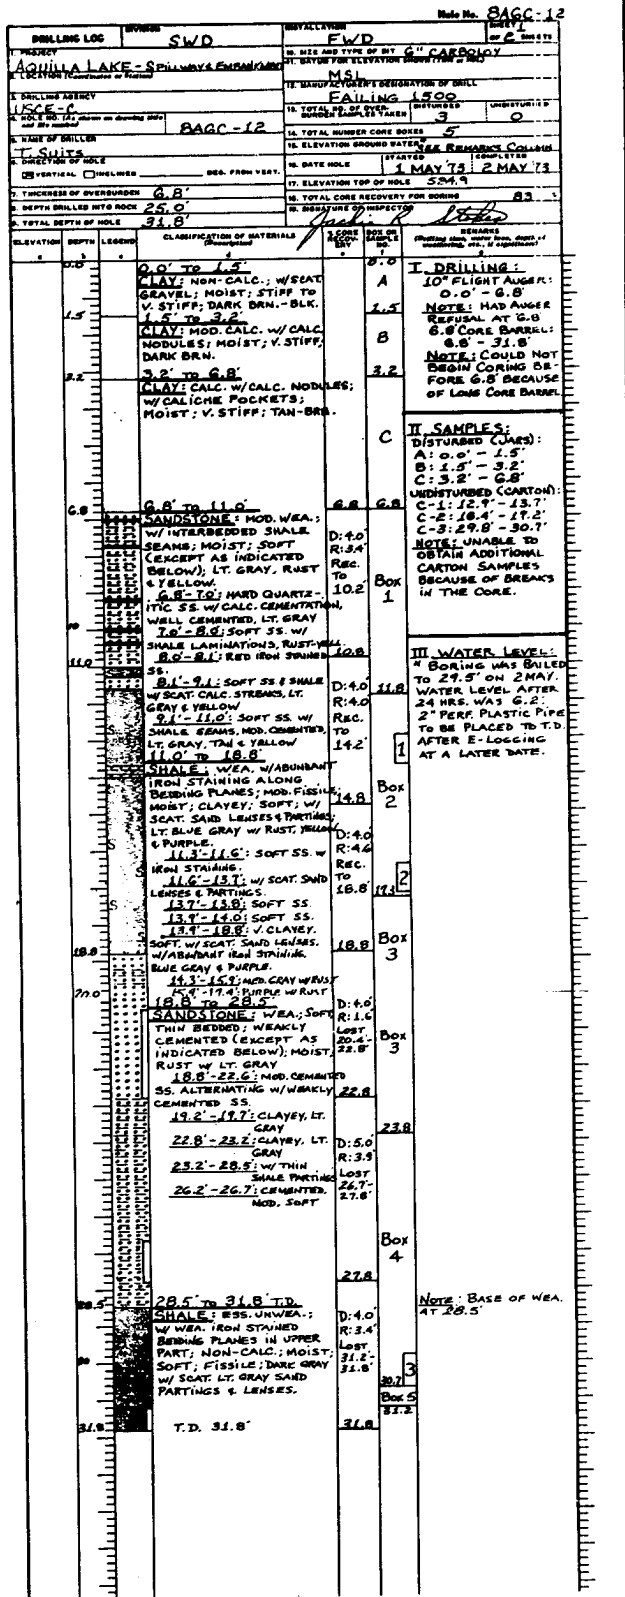 Hole No. 8AGC-12
DRILLING LOG
DIVISION
SWD
INSTALLATION
FWD
SHEET 1
OF 2 SHEETS
1. PROJECT
AQUILLA LAKE - SPILLWAY & EMBANKMENT
2. LOCATION (Coordinates or Station)
3. DRILLING AGENCY
USCE-C
4. HOLE NO. (As shown on drawing title and file number)
8AGC-12
5. NAME OF DRILLER
T. SUITS
6. DIRECTION OF HOLE
VERTICAL INCLINED DEG. FROM VERT.
7. THICKNESS OF OVERBURDEN 6.8'
8. DEPTH DRILLED INTO ROCK 25.0'
9. TOTAL DEPTH OF HOLE 31.8'
10. SIZE AND TYPE OF BIT 6" CARBOLOY
11. DATUM FOR ELEVATION SHOWN
MSL
12. MANUFACTURER'S DESIGNATION OF DRILL
FAILING 1500
13. TOTAL NO. OF OVER-BURDEN SAMPLES TAKEN
DISTURBED 3
UNDISTURBED 0
14. TOTAL NUMBER CORE BOXES 5
15. ELEVATION GROUND WATER SEE REMARKS COLUMN
16. DATE HOLE
STARTED 1 MAY 73
COMPLETED 2 MAY 73
17. ELEVATION TOP OF HOLE
18. TOTAL CORE RECOVERY FOR BORING 83 %
19. SIGNATURE OF INSPECTOR
ELEVATION DEPTH LEGEND
CLASSIFICATION OF MATERIALS
(Description)
% CORE RECOVERY
BOX OR SAMPLE NO.
REMARKS
(Drilling time, water loss, depth of weathering, etc., if significant)
0.0 0.0
0.0' TO 1.5'
CLAY: NON-CALC.; W/SCAT.
GRAVEL; MOIST; STIFF TO
V. STIFF; DARK BRN.-BLK.
A
1.5 1.5
1.5' TO 3.2'
CLAY: MOD. CALC. W/ CALC.
NODULES; MOIST; V. STIFF;
DARK BRN.
B
3.2 3.2
3.2' TO 6.8'
CLAY: CALC. W/CALC. NODULES;
W/CALICHE POCKETS;
MOIST; V. STIFF; TAN-BRN.
C
6.8 6.8 6.8
6.8' TO 11.0'
SANDSTONE: MOD. WEA.;
W/ INTERBEDDED SHALE
SEAMS; MOIST; SOFT
(EXCEPT AS INDICATED
BELOW); LT. GRAY, RUST
& YELLOW.
6.8'-7.0': HARD QUARTZ-
ITIC SS. W/ CALC. CEMENTATION,
WELL CEMENTED, LT. GRAY
7.0'-8.0': SOFT SS. W/
SHALE LAMINATIONS, RUST-YELL.
8.0'-8.1': RED IRON STAINED
SS.
8.1'-9.1: SOFT SS. & SHALE
W/ SCAT. CALC. STREAKS, LT.
GRAY & YELLOW
9.1'-11.0': SOFT SS. W/
SHALE SEAMS, MOD. CEMENTED,
LT. GRAY, TAN & YELLOW
D: 4.0'
R: 3.4'
REC.
TO
10.2'
Box
1
10
11.0 10.8
11.8
11.0' TO 18.8'
SHALE: WEA. W/ABUNDANT
IRON STAINING ALONG
BEDDING PLANES; MOD. FISSILE;
MOIST; CLAYEY; SOFT; W/
SCAT. SAND LENSES & PARTINGS;
LT. BLUE GRAY W/ RUST, YELLOW
& PURPLE.
11.3'-11.6': SOFT SS. W/
IRON STAINING.
11.6'-13.7': W/ SCAT. SAND
LENSES & PARTINGS.
13.7'-13.8': SOFT SS.
13.9'-14.0': SOFT SS.
13.9'-18.8': V. CLAYEY.
SOFT. W/ SCAT. SAND LENSES.
W/ABUNDANT IRON STAINING.
BLUE GRAY & PURPLE.
14.3'-15.9': MED. GRAY W/RUST
15.9'-17.4': PURPLE W/RUST
D: 4.0'
R: 4.0'
REC.
TO
14.2'
1
14.8
Box
2
D: 4.0
R: 4.6
REC.
TO
18.8'
2
18.8 18.8
Box
3
20.0
18.8' TO 28.5'
SANDSTONE: WEA.; SOFT;
THIN BEDDED; WEAKLY
CEMENTED (EXCEPT AS
INDICATED BELOW); MOIST;
RUST W/ LT. GRAY
18.8'-22.6': MOD. CEMENTED
SS. ALTERNATING W/WEAKLY
CEMENTED SS.
19.2'-19.7': CLAYEY, LT.
GRAY
22.8'-23.2': CLAYEY, LT.
GRAY
23.2'-28.5': W/ THIN
SHALE PARTINGS
26.2'-26.7': CEMENTED,
MOD. SOFT
D: 4.0'
R: 1.6'
LOST
20.4'-
22.8'
Box
3
22.8
23.8
D: 5.0'
R: 3.9'
LOST
26.7'-
27.8'
Box
4
27.8
28.5
28.5' TO 31.8' T.D.
SHALE: ESS. UNWEA.;
W/ WEA. IRON STAINED
BEDDING PLANES IN UPPER
PART; NON-CALC.; MOIST;
SOFT; FISSILE; DARK GRAY
W/ SCAT. LT. GRAY SAND
PARTINGS & LENSES.
D: 4.0'
R: 3.4'
LOST
31.2'-
31.8'
30
3
30.7
Box 5
31.2
31.8 T.D. 31.8' 31.8
I. DRILLING:
10" FLIGHT AUGER:
0.0' - 6.8'
NOTE: HAD AUGER
REFUSAL AT 6.8'
6.8 CORE BARREL:
6.8' - 31.8'
NOTE: COULD NOT
BEGIN CORING BE-
FORE 6.8' BECAUSE
OF LONG CORE BARREL
II SAMPLES:
DISTURBED (JARS):
A: 0.0' - 1.5'
B: 1.5' - 3.2'
C: 3.2' - 6.8'
UNDISTURBED (CARTON):
C-1: 12.9' - 13.7'
C-2: 16.4' - 17.2'
C-3: 29.8' - 30.7'
NOTE: UNABLE TO
OBTAIN ADDITIONAL
CARTON SAMPLES
BECAUSE OF BREAKS
IN THE CORE.
III WATER LEVEL:
" BORING WAS BAILED
TO 29.5' ON 2 MAY.
WATER LEVEL AFTER
24 HRS. WAS 6.2'.
2" PERF. PLASTIC PIPE
TO BE PLACED TO T.D.
AFTER E-LOGGING
AT A LATER DATE.
NOTE: BASE OF WEA.
AT 28.5'